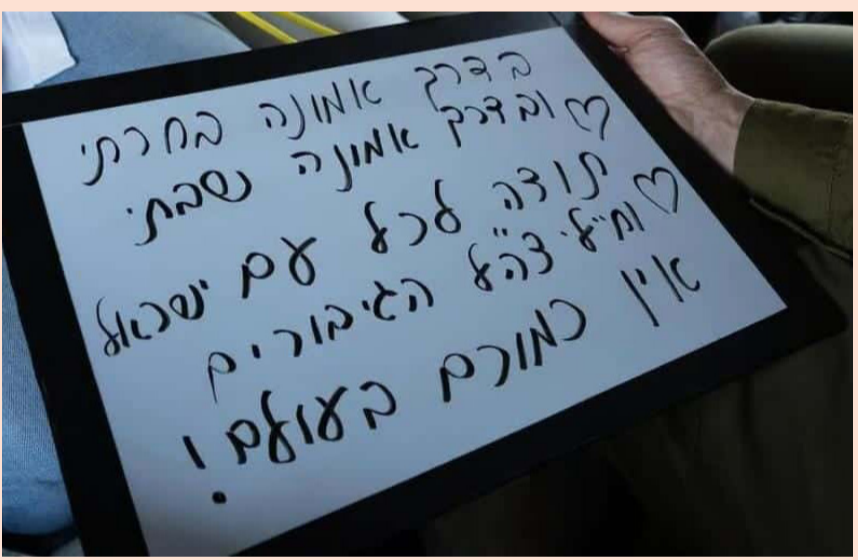 בדרך אמונה בחרתי
♡ ובדרך אמונה שבתי
תודה לכל עם ישראל ♡
וח"לי צה"ל הגיבורים
אין כמותם בעולם!